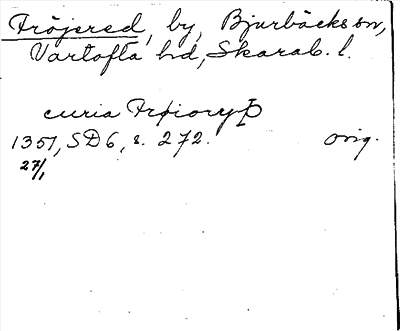 Fröjered, by, Bjurbäcks sn,
Vartofta hd, Skarab. l.
curia Frøiøryþ
1351, SD6, s. 272. orig.
27/1